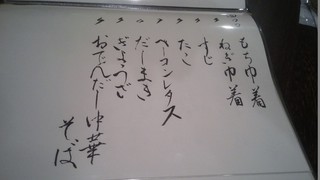 もち巾着
ねぎ巾着
すじ
たこ
ベーコンレタス
だしまき
ぎょうざ
おでんだし中華
そば